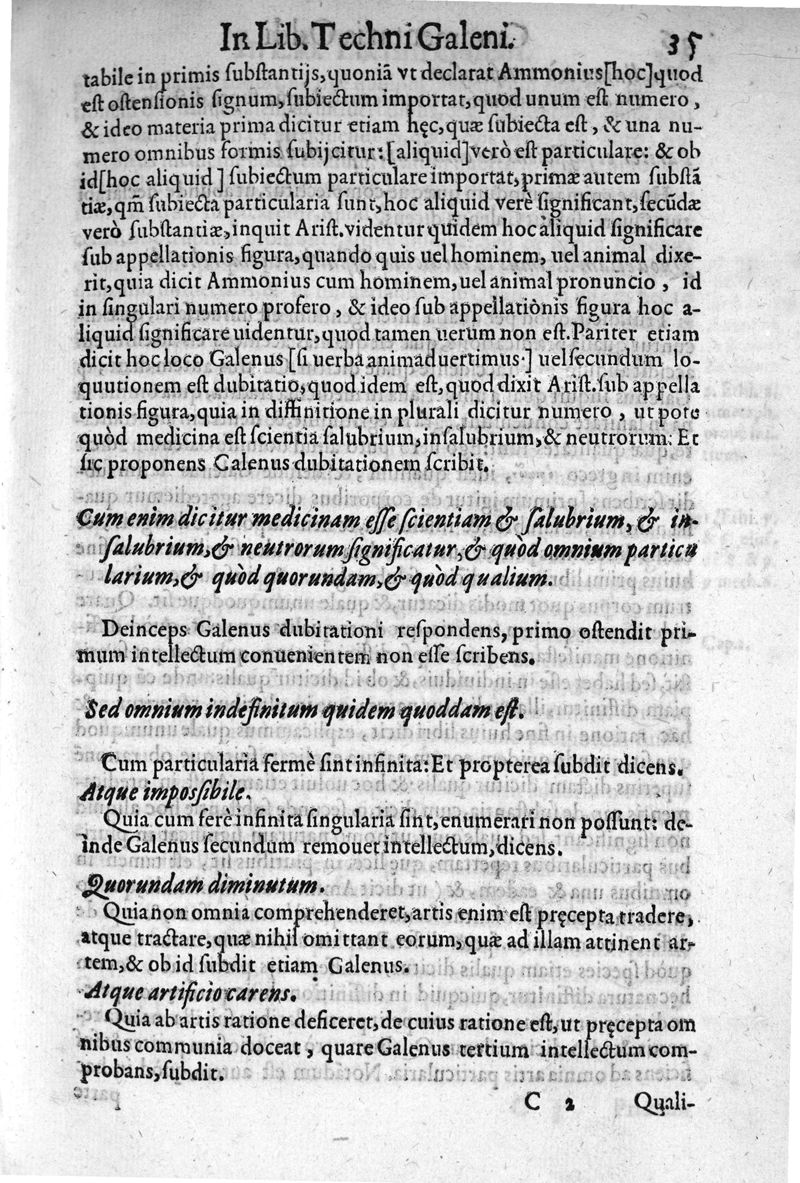 In Lib. Techni Galeni. 35
tabile in primis ſubſtantijs, quoniã vt declarat Ammonius [hoc] quod
eſt oſtenſionis ſignum, ſubiectum importat, quod unum eſt numero,
& ideo materia prima dicitur etiam hęc, quæ ſubiecta eſt, & una nu-
mero omnibus formis ſubijcitur: [aliquid] verò eſt particulare: & ob
id [hoc aliquid] ſubiectum particulare importat, primæ autem ſubſtã
tiæ, qm̃ ſubiecta particularia ſunt, hoc aliquid verè ſignificant, ſecũdæ
verò ſubſtantiæ, inquit Ariſt. videntur quidem hoc aliquid ſignificare
ſub appellationis figura, quando quis uel hominem, uel animal dixe-
rit, quia dicit Ammonius cum hominem, uel animal pronuncio, id
in ſingulari numero profero, & ideo ſub appellatiònis figura hoc a-
liquid ſignificare uidentur, quod tamen uerum non eſt. Pariter etiam
dicit hoc loco Galenus [ſi uerba animaduertimus] uel ſecundum lo-
quutionem eſt dubitatio, quod idem eſt, quod dixit Ariſt. ſub appella
tionis figura, quia in diffinitione in plurali dicitur numero, ut pote
quòd medicina eſt ſcientia ſalubrium, inſalubrium, & neutrorum. Et
ſic proponens Galenus dubitationem ſcribit.
Cum enim dicitur medicinam eſſe ſcientiam & ſalubrium, & in-
ſalubrium, & neutrorum ſignificatur, & quod omnium particu
larium, & quòd quorundam, & quòd qualium.
Deinceps Galenus dubitationi reſpondens, primo oſtendit pri-
mum intellectum conuenientem non eſſe ſcribens.
Sed omnium indefinitum quidem quoddam eſt.
Cum particularia fermè ſint infinita: Et propterea ſubdit dicens.
Atque impoſſibile.
Quia cum ferè infinita ſingularia ſint, enumerari non poſſunt: de-
inde Galenus ſecundum remouet intellectum, dicens.
Quorundam diminutum.
Quia non omnia comprehenderet, artis enim eſt pręcepta tradere,
atque tractare, quæ nihil omittant eorum, quæ ad illam attinent ar-
tem, & ob id ſubdit etiam Galenus.
Atque artificio carens.
Quia ab artis ratione deficeret, de cuius ratione eſt, ut pręcepta om
nibus communia doceat, quare Galenus tertium intellectum com-
probans, ſubdit.
C 2 Quali-